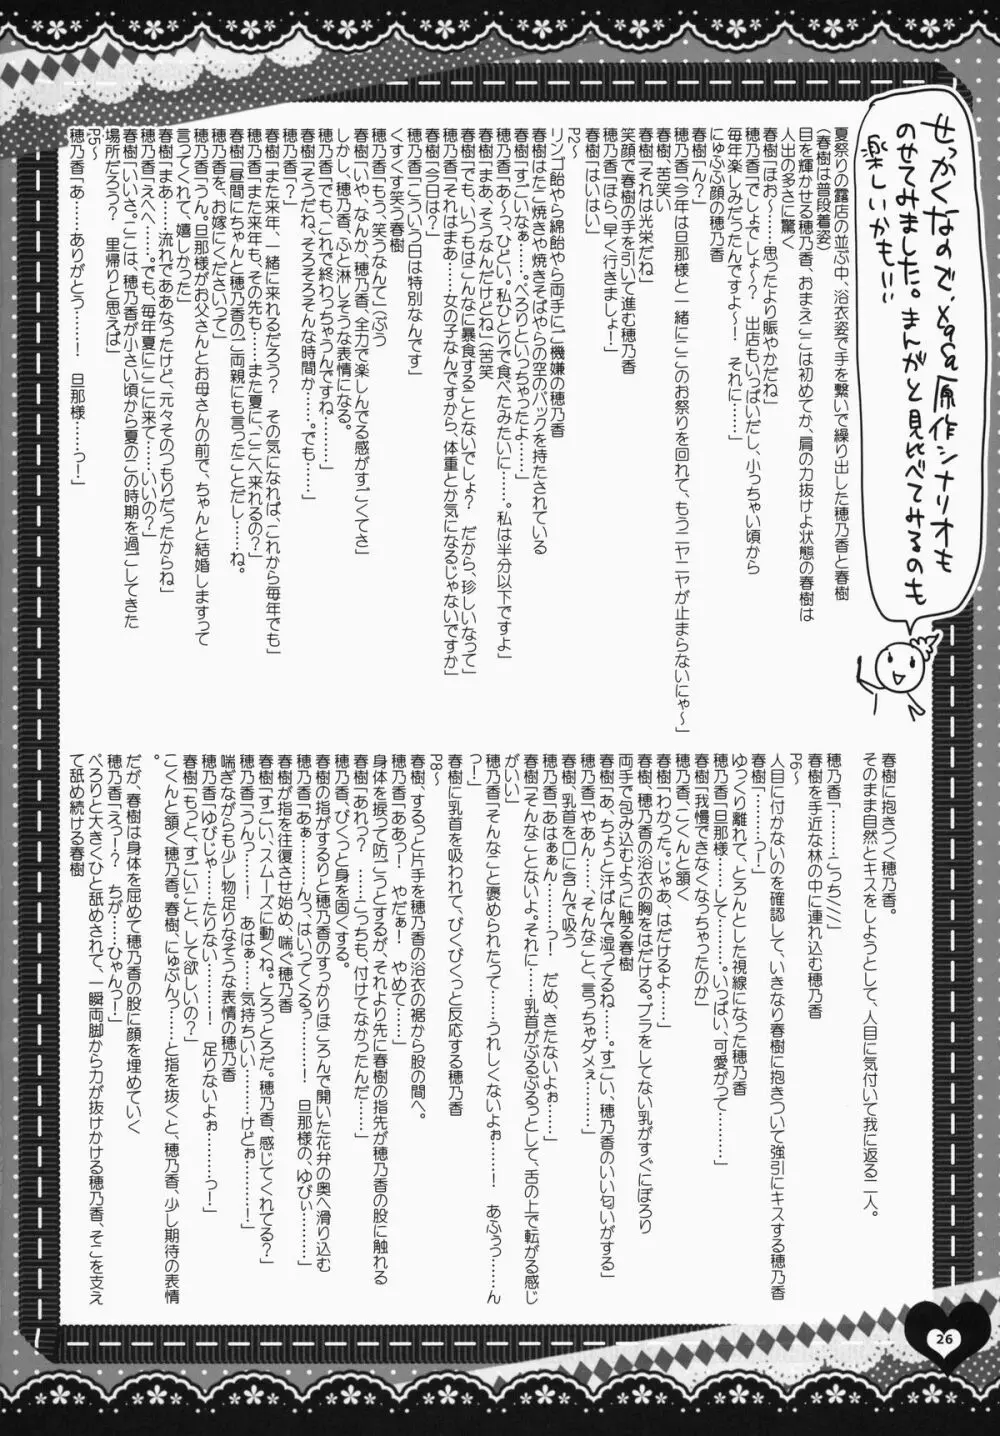 せっかくなので、xqsq原作シナリオも
のせてみました。まんがと見比べてみるのも
楽しいかも!!
夏祭りの露店の並ぶ中、浴衣姿で手を繋いで繰り出した穂乃香と春樹
(春樹は普段着姿)
目を輝かせる穂乃香、おまえここは初めてか、肩の力抜けよ状態の春樹は
人出の多さに驚く
春樹「ほお～……思ったより賑やかだね」
穂乃香「でしょでしょ～？　出店もいっぱいだし、小っちゃい頃から
毎年楽しみだったんですよ～！　それに……」
にゅふふ顔の穂乃香
春樹「ん？」
穂乃香「今年は旦那様と一緒にここのお祭りを回れて、もうニヤニヤが止まらないにゃ～」
春樹、苦笑い
春樹「それは光栄だね」
笑顔で春樹の手を引いて進む穂乃香
穂乃香「ほら、早く行きましょ！」
春樹「はいはい」
P2～
リンゴ飴やら綿飴やら両手にご機嫌の穂乃香
春樹はたこ焼きや焼きそばやらの空のパックを持たされている
春樹「すごいなぁ……ぺろりといっちゃったよ……」
穂乃香「あ～っ、ひどい。私ひとりで食べたみたいに……。私は半分以下ですよ」
春樹「まあ、そうなんだけどね」苦笑
春樹「でも、いつもはこんなに暴食することないでしょ？　だから、珍しいなって」
穂乃香「それはまあ……女の子なんですから、体重とか気になるじゃないですか」
春樹「今日は？」
穂乃香「こういう日は特別なんです」
くすくす笑う春樹
穂乃香「もう、笑うなんて」(ぷう
春樹「いや、なんか、穂乃香、全力で楽しんでる感がすごくてさ」
しかし、穂乃香、ふと淋しそうな表情になる。
穂乃香「でも、これで終わっちゃうんですね………」
春樹「そうだね、そろそろそんな時間か……。でも……」
穂乃香「？」
春樹「また来年、一緒に来れるだろう？　その気になれば、これから毎年でも」
穂乃香「また来年も、その先も……また夏に、ここへ来れるの？」
春樹「昼間にちゃんと穂乃香のご両親にも言ったことだし……ね。
穂乃香を、お嫁にくださいって」
穂乃香「うん。旦那様がお父さんとお母さんの前で、ちゃんと結婚しますって
言ってくれて、嬉しかった」
春樹「まあ……流れでああなったけど、元々そのつもりだったからね」
穂乃香「えへへ……。でも、毎年夏にここに来て……いいの？」
春樹「いいさ。ここは、穂乃香が小さい頃から夏のこの時期を過ごしてきた
場所だろう？　里帰りと思えば」
P5～
穂乃香「あ……ありがとう……！　旦那様……っー」
春樹に抱きつく穂乃香。
そのまま自然とキスをしようとして、人目に気付いて我に返る二人。
穂乃香「………こっち///」
春樹を手近な林の中に連れ込む穂乃香
P6～
人目に付かないのを確認して、いきなり春樹に抱きついて強引にキスする穂乃香
春樹「………っー」
ゆっくり離れて、とろんとした視線になった穂乃香
穂乃香「旦那様……して……。いっぱい、可愛がって……」
春樹「我慢できなくなっちゃったのか」
穂乃香、こくんと頷く
春樹「わかった。じゃあ、はだけるよ……」
春樹、穂乃香の浴衣の胸をはだける。ブラをしてない乳がすぐにぽろり
両手で包み込むように触る春樹
春樹「あ、ちょっと汗ばんで湿ってるね……。すごい、穂乃香のいい匂いがする」
穂乃香「やあん……そんなこと、言っちゃダメぇ……」
春樹、乳首を口に含んで吸う
穂乃香「あはぁぁん………っー　だめ、きたないよぉ……」
春樹「そんなことないよ。それに……乳首がぷるぷるっとして、舌の上で転がる感じ
がいい」
穂乃香「そんなこと褒められたって……うれしくないよぉ……！　あふぅっ……ん
っー」
春樹に乳首を吸われて、びくびくっと反応する穂乃香
P8～
春樹、するっと片手を穂乃香の浴衣の裾から股の間へ。
穂乃香「ああっー　やだぁー　やめて……」
身体を捩って防ごうとするが、それより先に春樹の指先が穂乃香の股に触れる
春樹「あれっ？　……こっちも、付けてなかったんだ……」
穂乃香、びくっと身を固くする。
春樹の指がするりと穂乃香のすっかりほころんで開いた花弁の奥へ滑り込む
穂乃香「あぁ………んっ、はいってくるぅ………！　旦那様の、ゆびぃ………」
春樹が指を往復させ始め、喘ぐ穂乃香
春樹「すごい、スムーズに動くね。とろっとろだ。穂乃香、感じてくれてる？」
穂乃香「うんっ……！　あはぁ……気持ちいい………けどぉ………！」
喘ぎながらも少し物足りなそうな表情の穂乃香
穂乃香「ゆびじゃ……たりない………！　足りないよぉ……っー」
春樹「もっと、すごいこと、して欲しいの？」
こくんと頷く穂乃香。春樹、にゅぷんっ……と指を抜くと、穂乃香、少し期待の表情
。
だが、春樹は身体を屈めて穂乃香の股に顔を埋めていく
穂乃香「えっー？　ちが……ひゃんっー」
ぺろりと大きくひと舐めされて、一瞬両脚から力が抜けかける穂乃香、そこを支え
て舐め続ける春樹
26